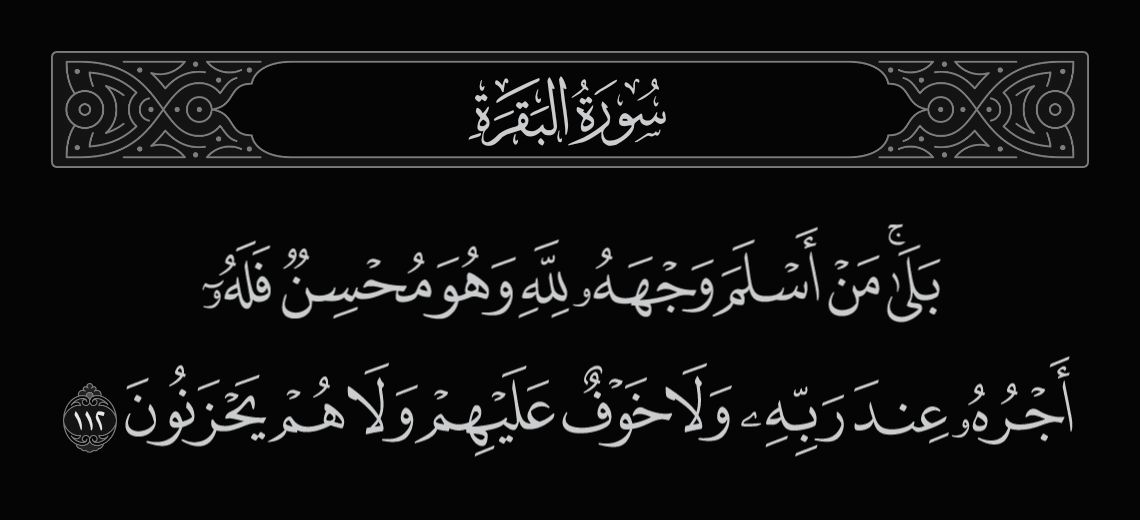 سُورَةُ البَقَرَةِ
بَلَىٰۚ مَنۡ أَسۡلَمَ وَجۡهَهُۥ لِلَّهِ وَهُوَ مُحۡسِنٞ فَلَهُۥٓ
أَجۡرُهُۥ عِندَ رَبِّهِۦ وَلَا خَوۡفٌ عَلَيۡهِمۡ وَلَا هُمۡ يَحۡزَنُونَ ١١٢